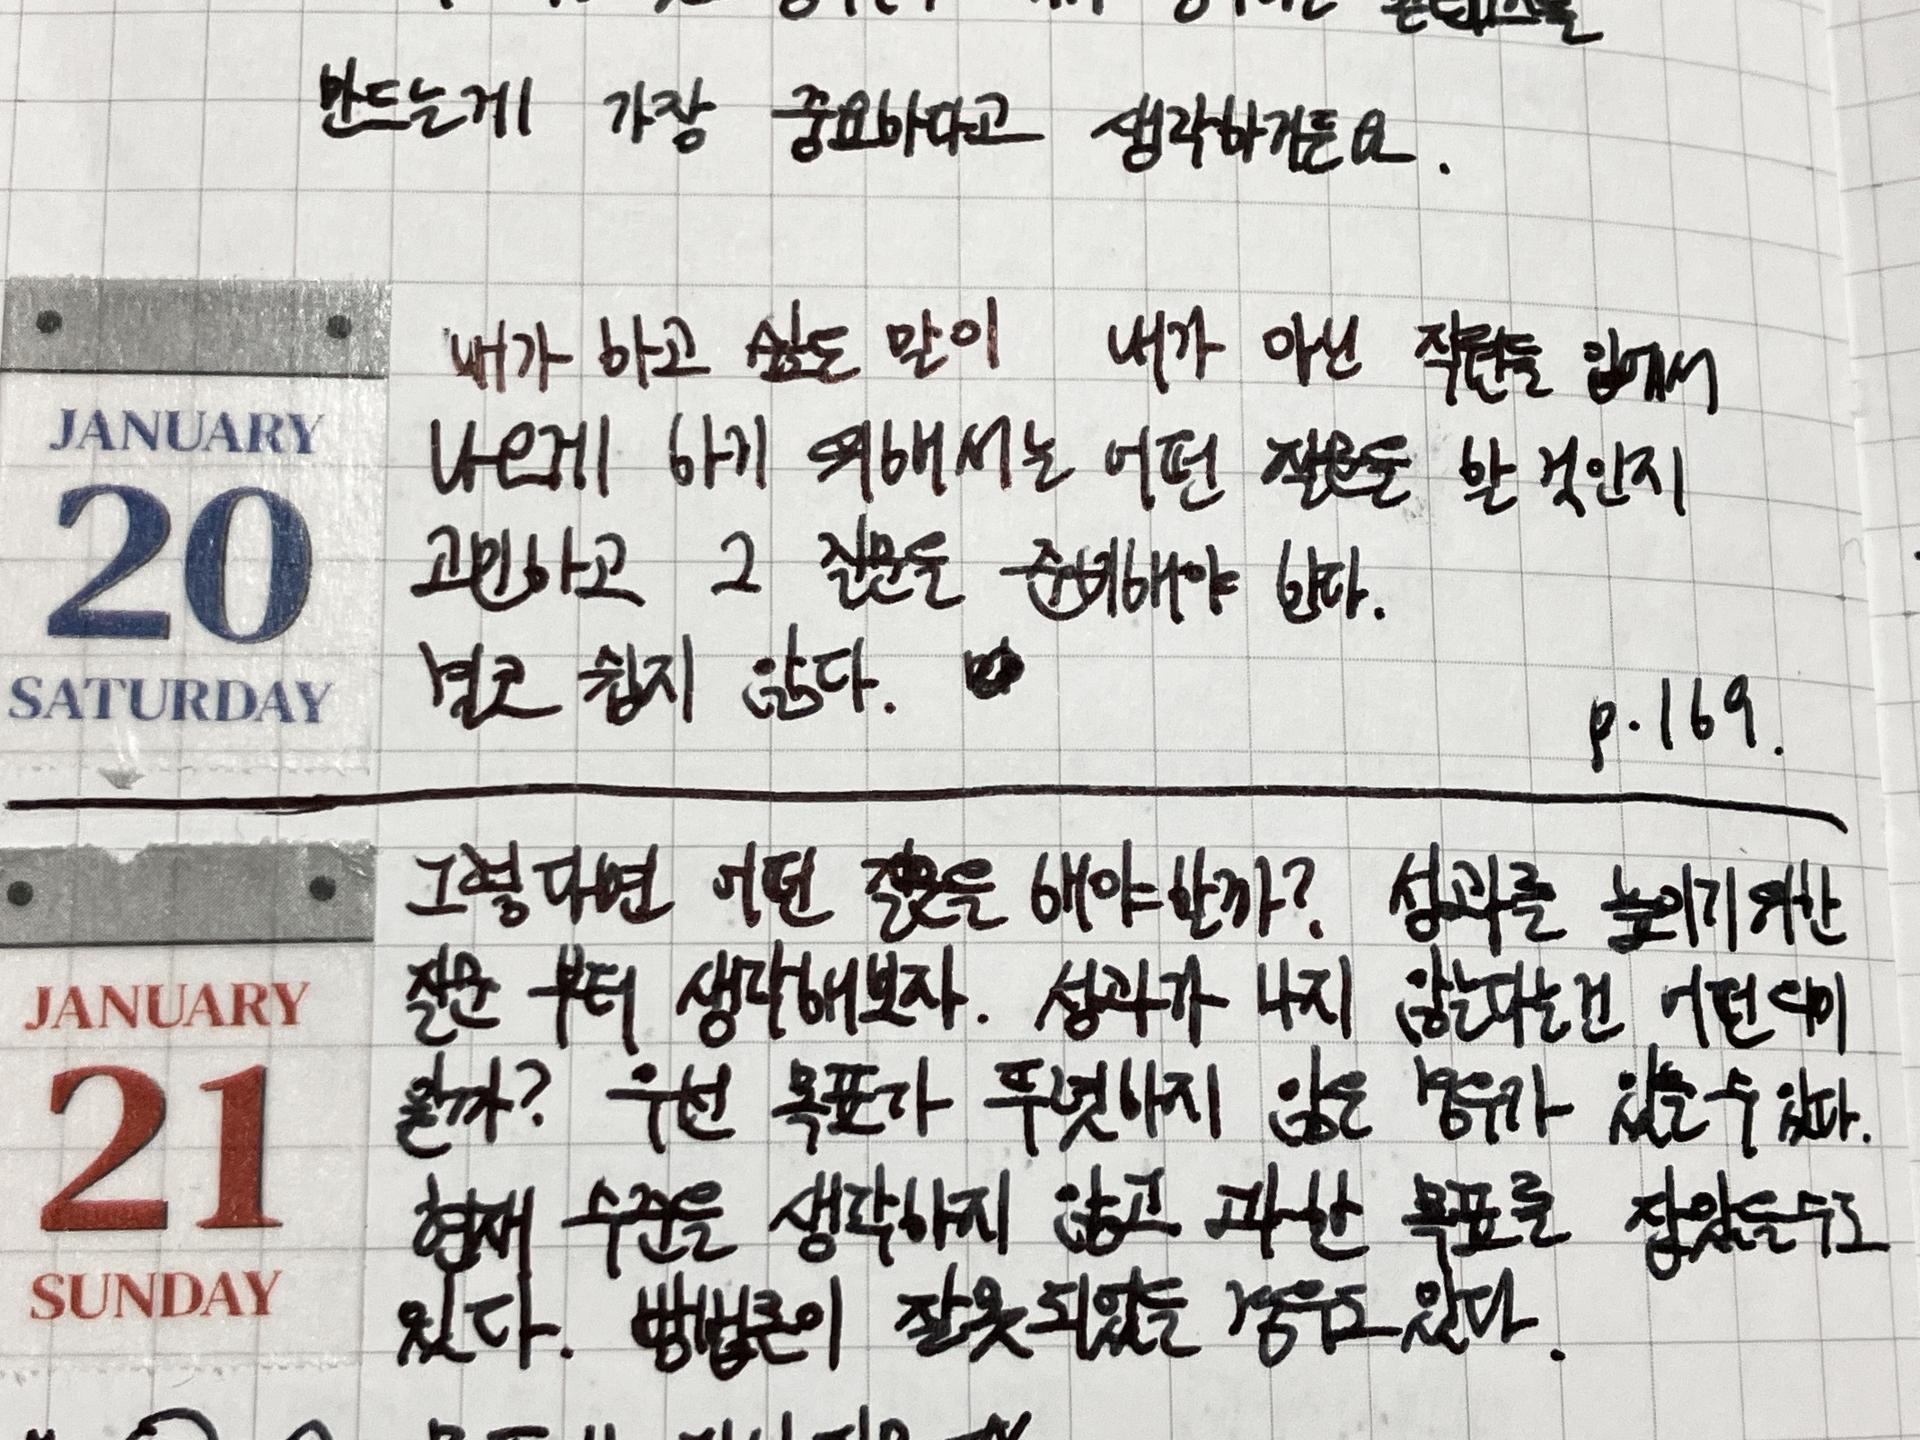 만드는게 가장 중요하다고 생각하거든요.
내가 하고 싶은 말이 내가 아닌 직원들 입에서
나오게 하기 위해서는 어떤 질문을 할 것인지
고민하고 그 질문을 준비해야 한다.
결코 쉽지 않다.
p.169.
JANUARY
20
SATURDAY
그렇다면 어떤 질문을 해야할까? 성과를 높이기위한
질문 부터 생각해보자. 성과가 나지 않는다는건 어떤
일까? 우선 목표가 뚜렷하지 않은 경우가 있을 수 있다.
현재 수준을 생각하지 않고 과한 목표를 잡았을수도
있다. 방법론이 잘못되었을 경우도 있다.
JANUARY
21
SUNDAY